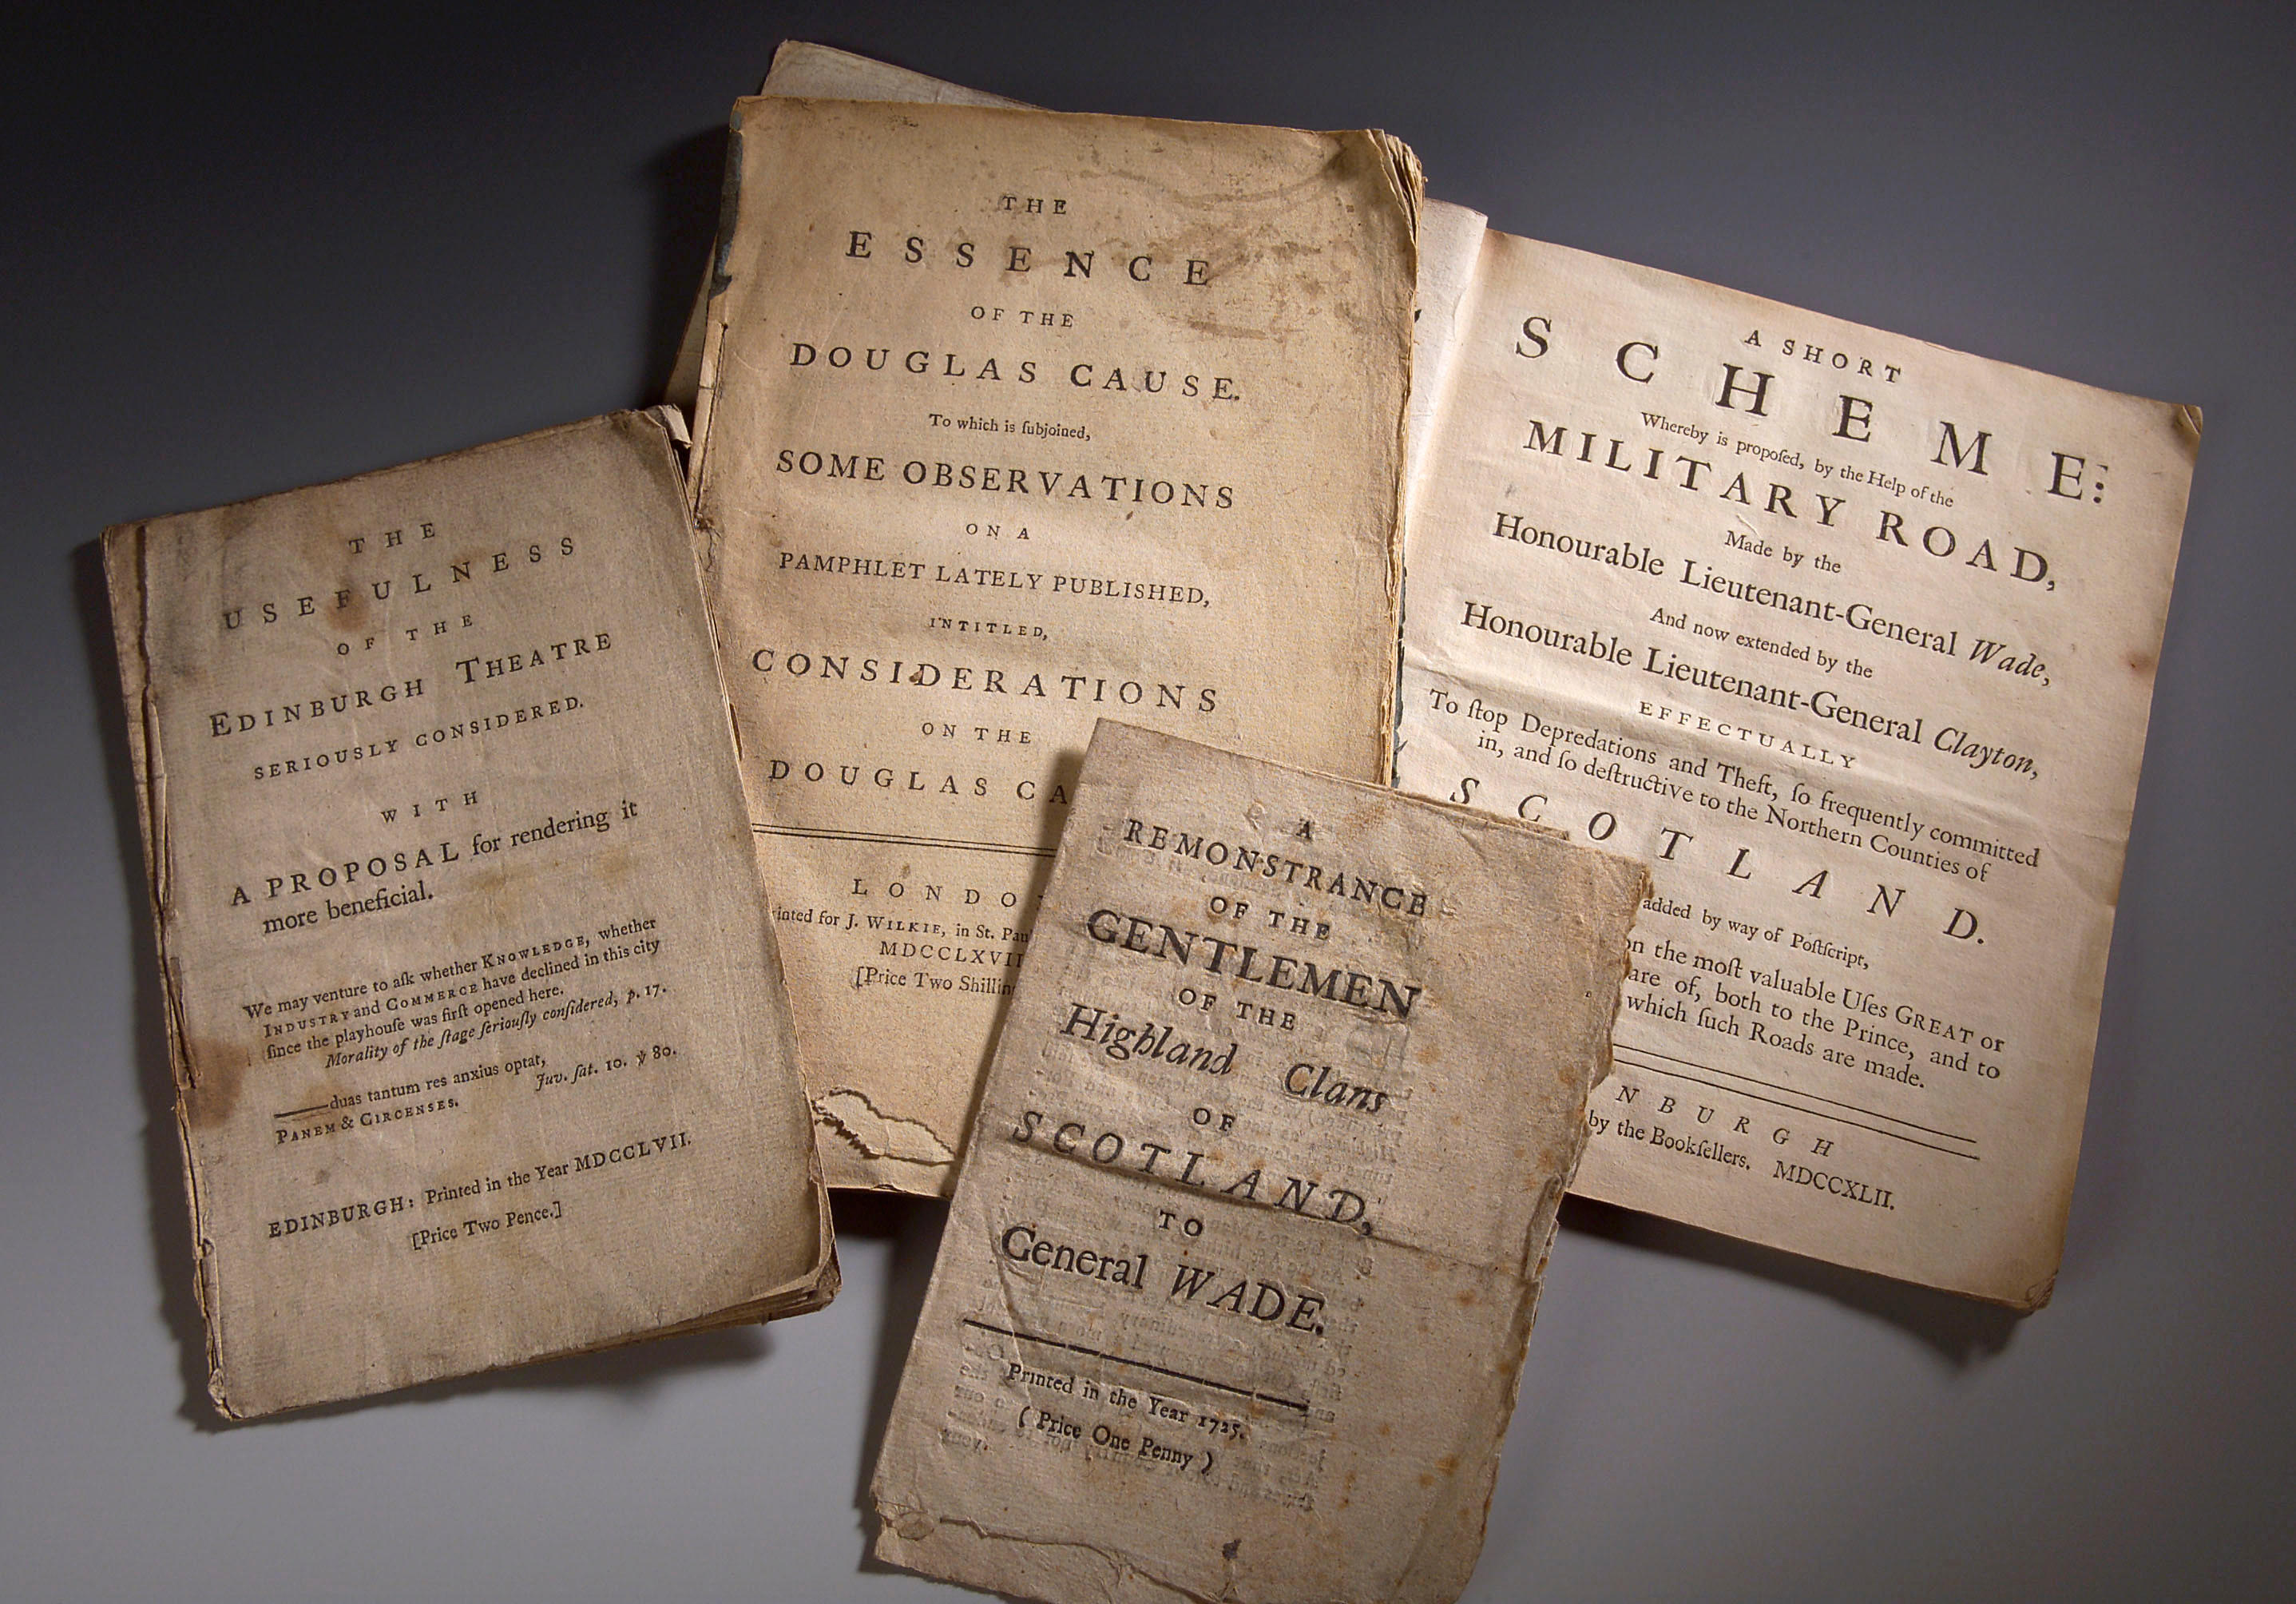 THE
USEFULNESS
OF THE
EDINBURGH THEATRE
SERIOUSLY CONSIDERED.
WITH
A PROPOSAL for rendering it
more beneficial.
We may venture to aſk whether KNOWLEDGE, whether
INDUSTRY and COMMERCE have declined in this city
ſince the playhouſe was firſt opened here.
Morality of the ſtage ſeriouſly conſidered, p. 17.
——duas tantum res anxius optat,
PANEM & CIRCENSES.
Juv. ſat. 10. ꝟ 80.
EDINBURGH: Printed in the Year MDCCLVII.
[Price Two Pence.]
THE
ESSENCE
OF THE
DOUGLAS CAUSE.
To which is ſubjoined,
SOME OBSERVATIONS
ON A
PAMPHLET LATELY PUBLISHED,
INTITLED,
CONSIDERATIONS
ON THE
DOUGLAS CA
LONDO
rinted for J. WILKIE, in St. Pau
MDCCLXVII
[Price Two Shillin
A
REMONSTRANCE
OF THE
GENTLEMEN
OF THE
Highland Clans
OF
SCOTLAND,
TO
General WADE.
Printed in the Year 1725.
( Price One Penny )
A SHORT
SCHEME:
Whereby is propoſed, by the Help of the
MILITARY ROAD,
Made by the
Honourable Lieutenant-General Wade,
And now extended by the
Honourable Lieutenant-General Clayton,
EFFECTUALLY
To ſtop Depredations and Theft, ſo frequently committed
in, and ſo deſtructive to the Northern Counties of
SCOTLAND.
added by way of Poſtſcript,
on the moſt valuable Uſes GREAT or
are of, both to the Prince, and to
which ſuch Roads are made.
NBURGH
by the Bookſellers. MDCCXLII.